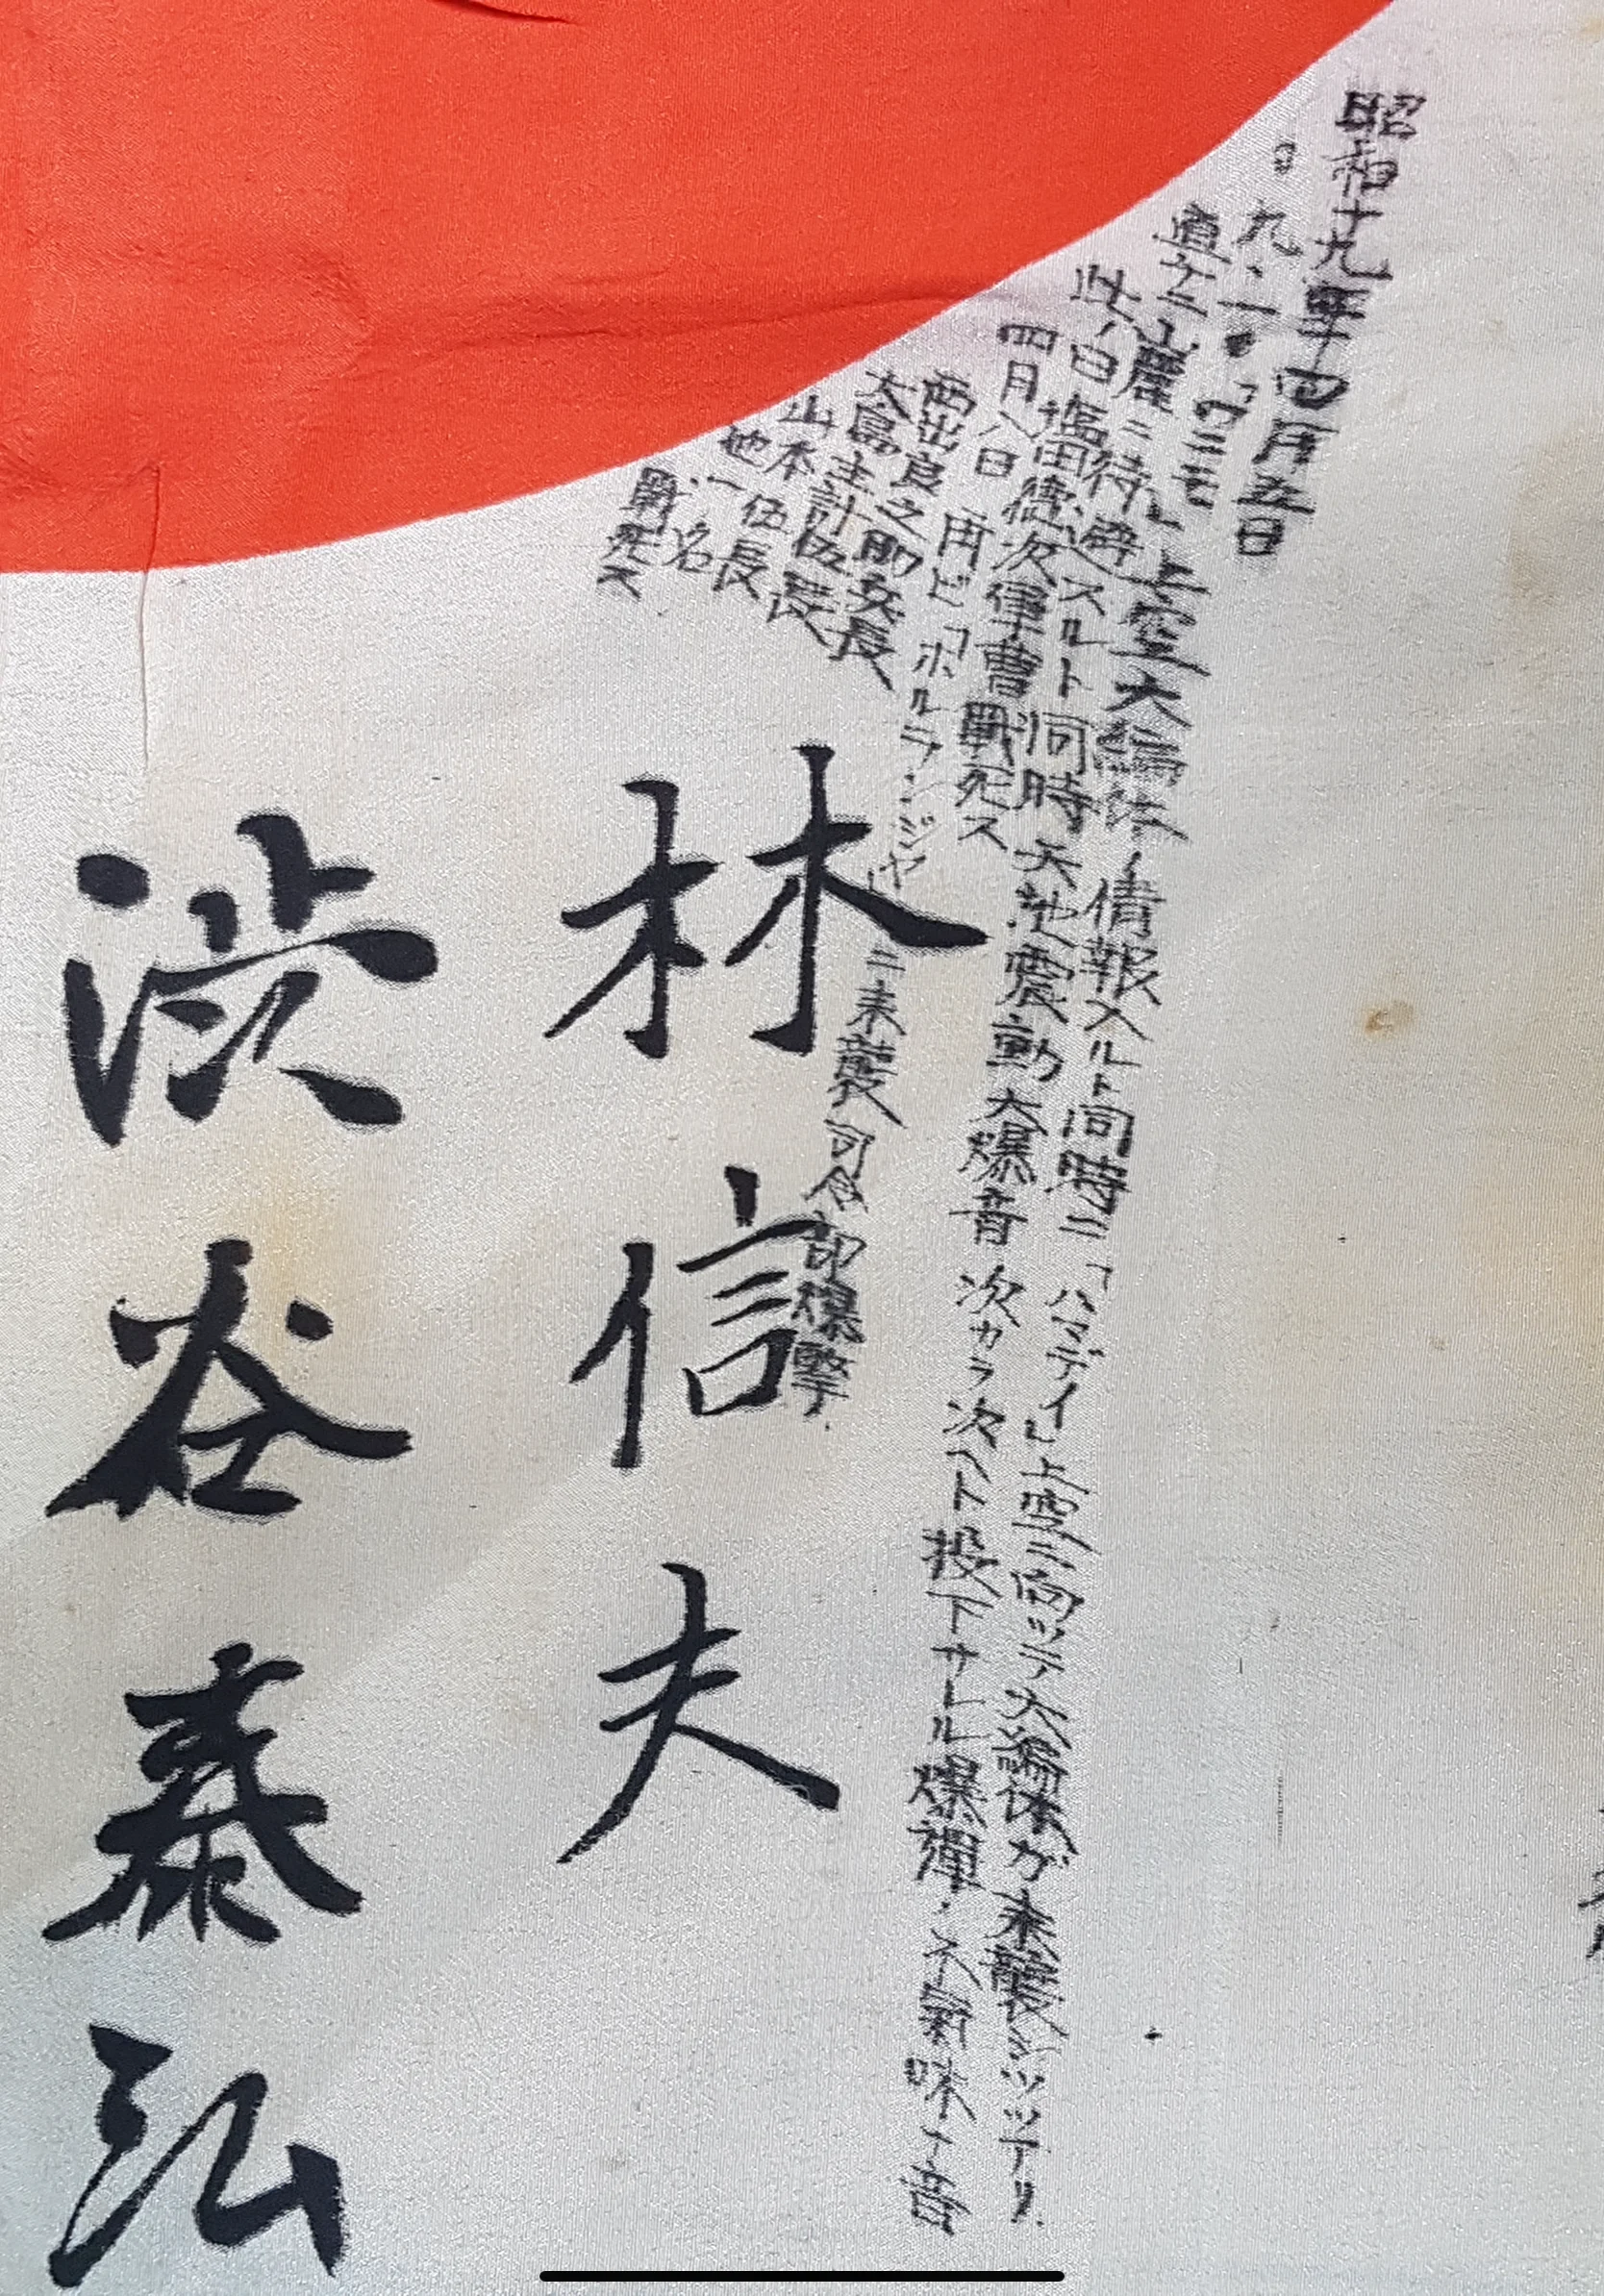 昭和十九年四月五日
直ケニ山麓ニ待避
上空大編隊ノ情報スルト同時ニ「ハマデイ」上空ニ向ツテ大編隊ガ来襲シツツアリ
此ノ日塩田徳次軍曹戦死ス
スルト同時天地震動大爆音次カラ次ヘト投下サレル爆弾、不気味ナ音
四月八日再ビ「ホルランジヤ」ニ来襲司令部爆撃
西出良之助兵長
大島主計伍長
山本一伍長
他 名
戦死ス
林信夫
渋谷泰弘